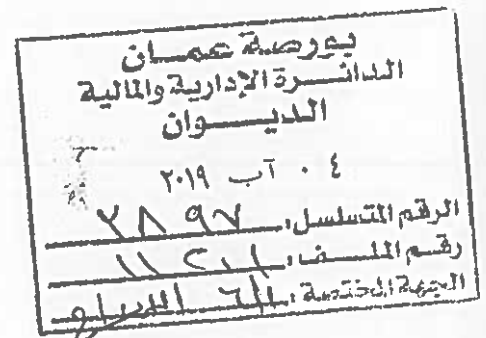 بورصة عمان
الدائرة الإدارية والمالية
الديوان
٠٤ آب ٢٠١٩
الرقم المتسلسل: ٢٨٩٧
رقم الملف:
الجهة المختصة: